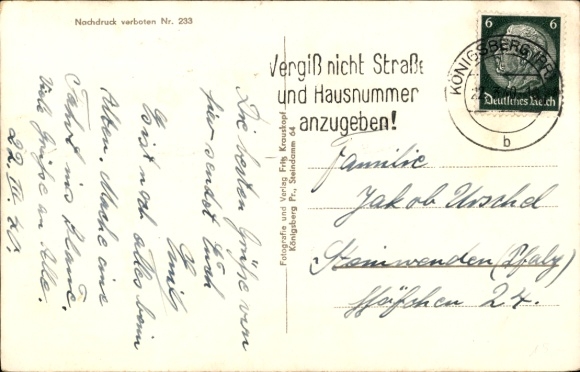 Nachdruck verboten Nr. 233
Die besten Grüße von
hier sendet Euch
Emil
Es ist noch alles beim
Alten. Mache eine
Fahrt ins
Viele Grüße an Alle.
22. III. 40.
Fotografie und Verlag Fritz Krauskopf
Königsberg Pr., Steindamm 64
Vergiß nicht Straße
und Hausnummer
anzugeben!
KÖNIGSBERG (PR)
b
6 6
Deutsches Reich
Familie
Jakob Urschel
Steinwenden (Pfalz)
24.